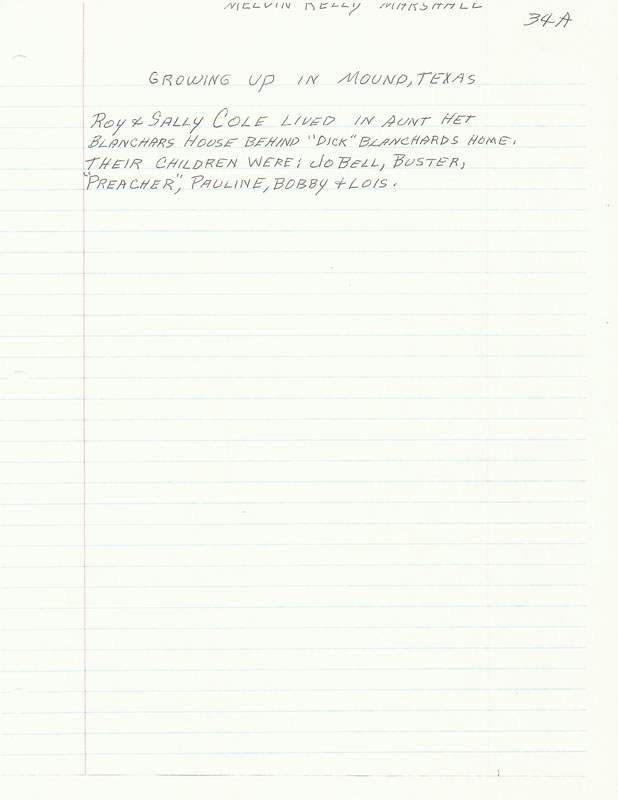 MELVIN KELLY MARSHALL
34A
GROWING UP IN MOUND, TEXAS
ROY & SALLY COLE LIVED IN AUNT HET
BLANCHARS HOUSE BEHIND "DICK" BLANCHARDS HOME.
THEIR CHILDREN WERE; JO BELL, BUSTER,
"PREACHER", PAULINE, BOBBY & LOIS.